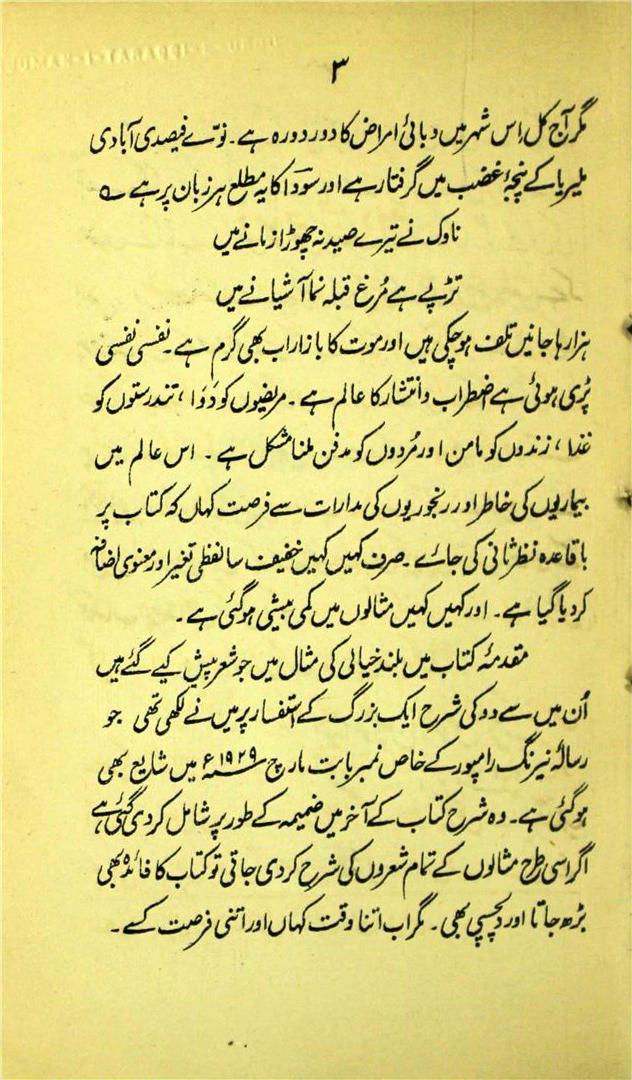 ۳
مگر آج کل اِس شہر میں وبائی امراض کا دور دورہ ہے۔ نوّے فیصدی آبادی
ملیریا کے پنجۂ غضب میں گرفتار ہے اور سوداؔ کا یہ مطلع ہر زبان پر ہے ؎
ناوک نے تیرے صید نہ چھوڑا زمانے میں
تڑپے ہے مُرغ قبلہ نما آشیانے میں
ہزارہا جانیں تلف ہو چکی ہیں اور موت کا بازار اب بھی گرم ہے۔ نفسی نفسی
پڑی ہوئی ہے اضطراب و انتشار کا عالم ہے۔ مریضوں کو دَوا، تندرستوں کو
غذا، زندوں کو مامن اور مُردوں کو مدفن ملنا مشکل ہے۔ اس عالم میں
بیماریوں کی خاطر اور رنجوریوں کی مدارات سے فرصت کہاں کہ کتاب پر
باقاعدہ نظر ثانی کی جائے۔ صرف کہیں کہیں خفیف سا لفظی تغیر اور معنوی اضافہ
کر دیا گیا ہے۔ اور کہیں کہیں مثالوں میں کمی بیشی ہو گئی ہے۔
مقدمۂ کتاب میں بلند خیالی کی مثال میں جو شعر پیش کیے گئے ہیں
اُن میں سے دو کی شرح ایک بزرگ کے استفسار پر میں نے لکھی تھی جو
رسالۂ نیرنگ رامپور کے خاص نمبر بابت مارچ ۱۹۲۹ء میں شایع بھی
ہو گئی ہے۔ وہ شرح کتاب کے آخر میں ضمیمہ کے طور پر شامل کر دی گئی ہے
اگر اسی طرح مثالوں کے تمام شعروں کی شرح کر دی جاتی تو کتاب کا فائدہ بھی
بڑھ جاتا اور دلچسپی بھی۔ مگر اب اتنا وقت کہاں اور اتنی فرصت کسے۔